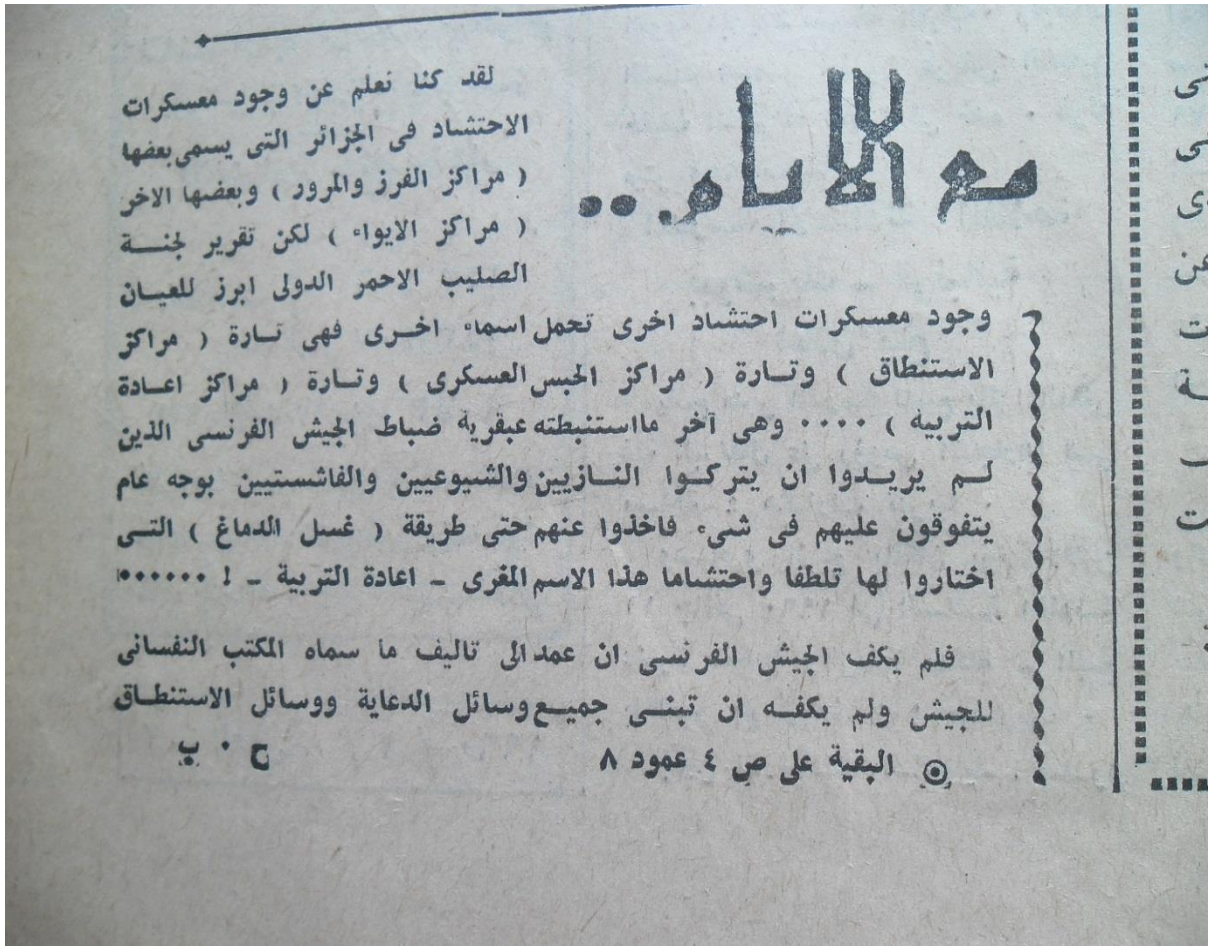 مع الايام ..
لقد كنا نعلم عن وجود معسكرات
الاحتشاد فى الجزائر التى يسمى بعضها
( مراكز الفرز والمرور ) وبعضها الاخر
( مراكز الايواء ) لكن تقرير لجنـــة
الصليب الاحمر الدولى ابرز للعيـان
وجود معسكرات احتشاد اخرى تحمل اسماء اخـرى فهى تـارة ( مراكز
الاستنطاق ) وتـارة ( مراكز الحبس العسكرى ) وتـارة ( مراكز اعـادة
التربيه ) ٠٠٠٠ وهى آخر مااستنبطته عبقرية ضباط الجيش الفرنسى الذين
لـم يريـدوا ان يتركـوا النـازيين والشيوعيين والفاشستيين بوجه عام
يتفوقون عليهم فى شىء فاخذوا عنهم حتى طريقة ( غسل الدماغ ) التـى
اختاروا لها تلطفا واحتشاما هذا الاسم المغرى - اعادة التربية - ! ٠٠٠٠٠٠
فلم يكف الجيش الفرنسى ان عمد الى تاليف ما سماه المكتب النفسانى
للجيش ولم يكفـه ان تبنـى جميـع وسائل الدعاية ووسائل الاستنطـاق
البقية على ص ٤ عمود ٨
ح ٠ ب
حى
ـى
وى
عن
ت
ـة
ـب
ت